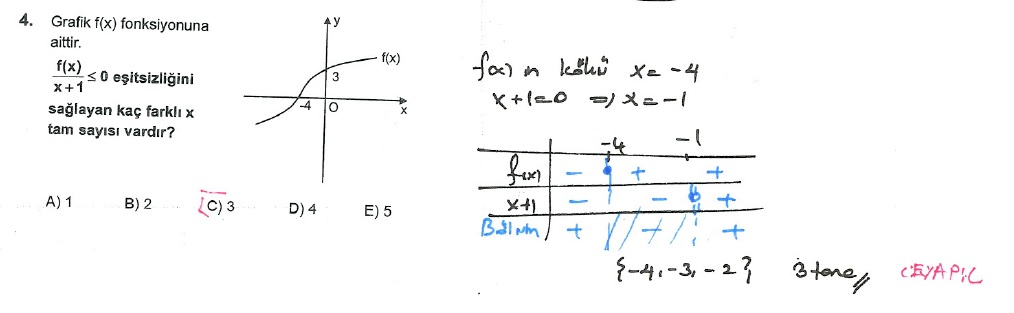 4. Grafik f(x) fonksiyonuna
aittir.
f(x)
x+1
≤ 0 eşitsizliğini
sağlayan kaç farklı x
tam sayısı vardır?
y
f(x)
3
-4
O
x
A) 1
B) 2
C) 3
D) 4
E) 5
f(x) in kökü x = -4
x+1=0 ⇒ x = -1
-4 -1
f(x) - + +
x+1 - - +
Bölüm + - +
{-4, -3, -2} 3 tane
CEVAP: C